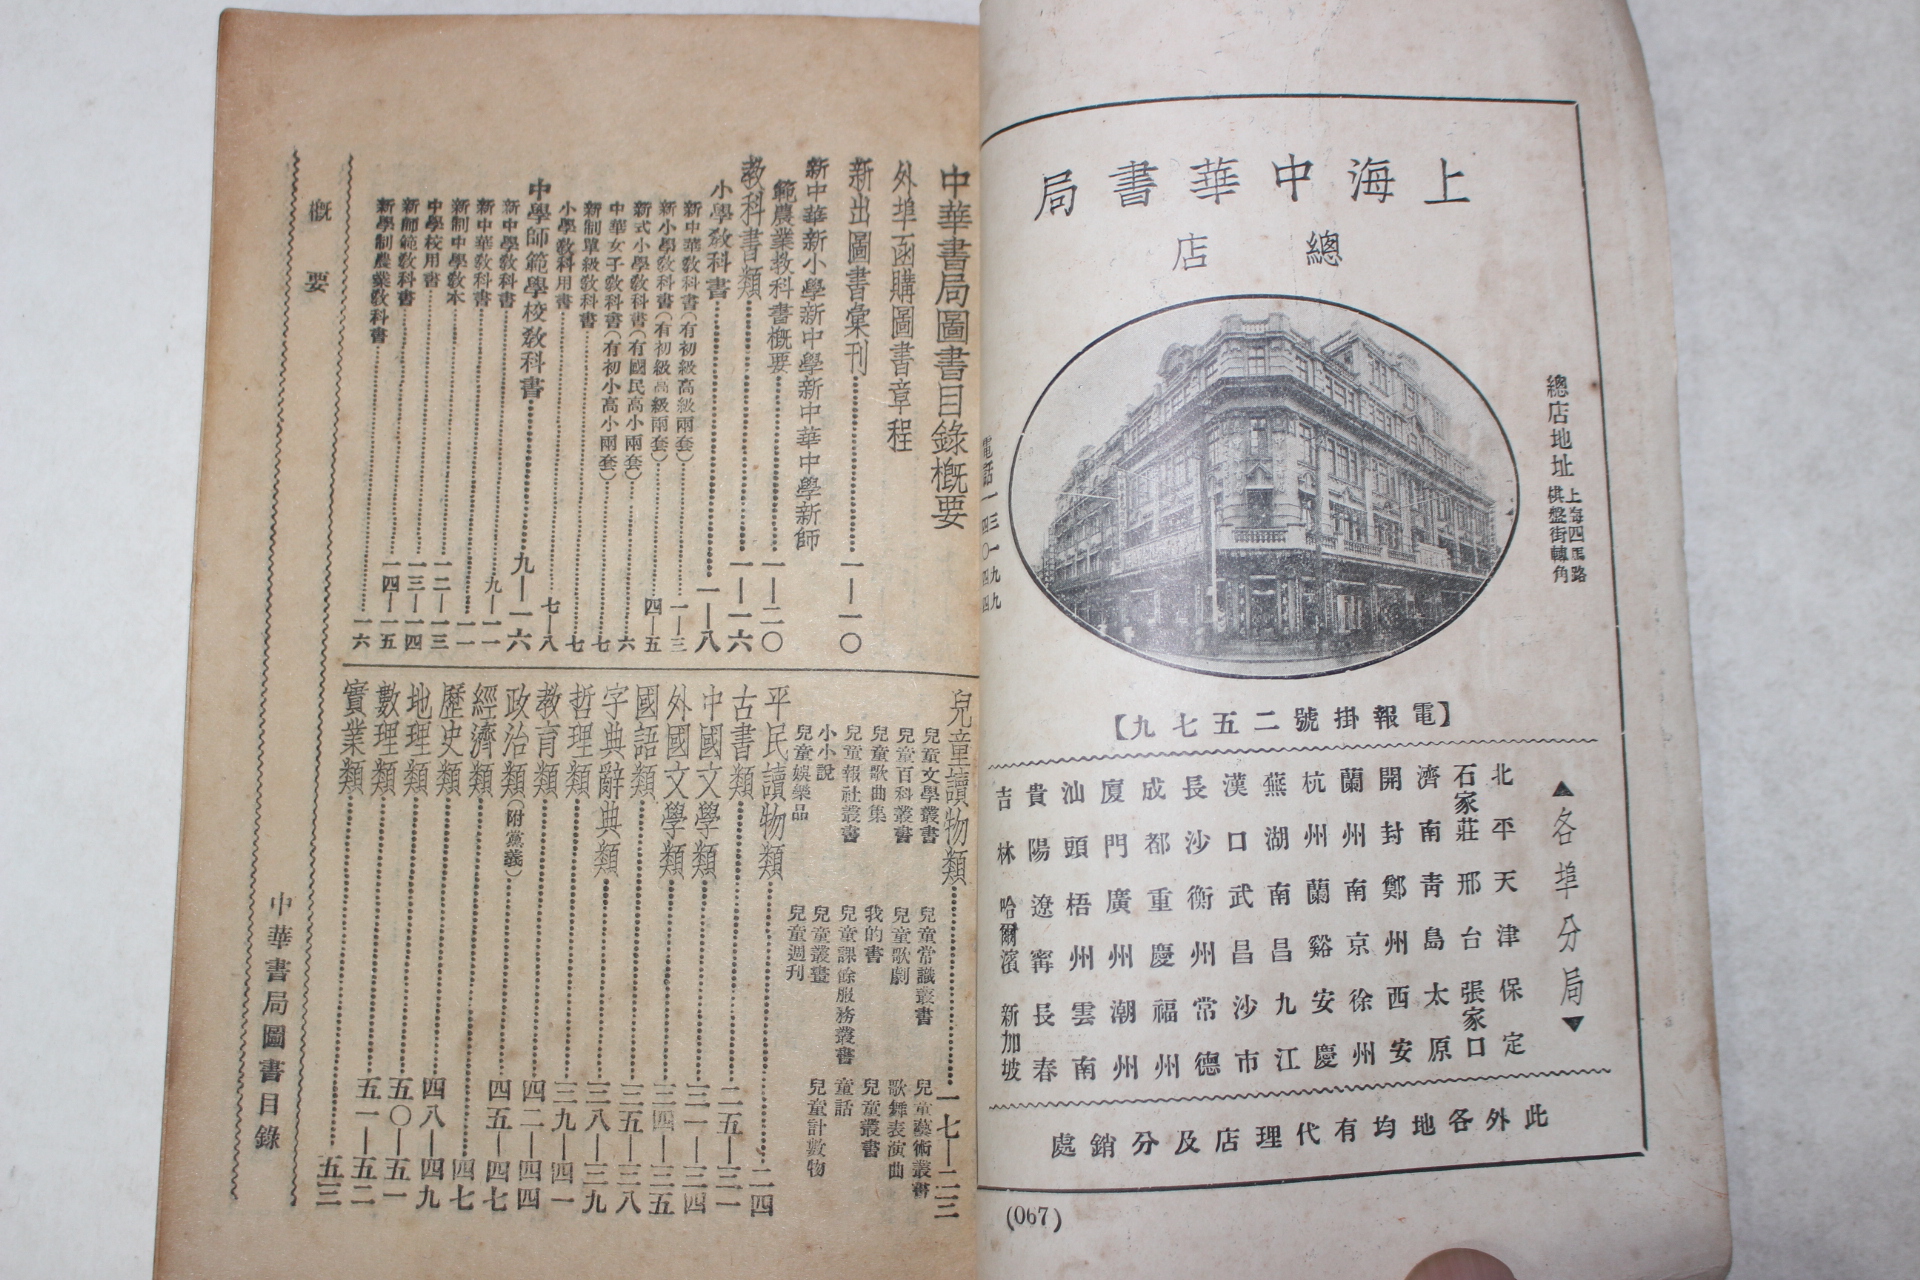 上海中華書局
總店
總店地址
上海四馬路
棋盤街轉角
電話
一三一九九
四〇四四九
【電報掛號二五七九】
▲各埠分局▼
北平 天津 保定
石家莊 邢台 張家口
濟南 青島 太原
開封 鄭州 西安
蘭州 南京 徐州
杭州 蘭谿 安慶
蕪湖 南昌 九江
漢口 武昌 沙市
長沙 衡州 常德
成都 重慶 福州
廈門 廣州 潮州
汕頭 梧州 雲南
貴陽 遼寧 長春
吉林 哈爾濱 新加坡
此外各地均有代理店及分銷處
(067)
中華書局圖書目錄概要
外埠函購圖書章程
新出圖書彙刊……一—一〇
新中華新小學新中學新中華中學新師
範農業教科書概要……一—二〇
教科書類……一—一六
小學教科書……一—八
新中華教科書(有初級高級兩套)……一—三
新小學教科書(有初級高級兩套)……四—五
新式小學教科書(有國民高小兩套)……六
中華女子教科書(有初小高小兩套)……七
新制單級教科書……七
小學教科用書……七—八
中學師範學校教科書……九—一六
新中學教科書……九—一一
新中華教科書……一一
新制中學教本……一二—一三
中學校用書……一三—一四
新師範教科書……一四—一五
新學制農業教科書……一六
兒童讀物類……一七—二三
兒童文學叢書 兒童常識叢書 兒童藝術叢書
兒童百科叢書 兒童歌劇 歌舞表演曲
兒童歌曲集 我的書 兒童叢書
兒童報社叢書 兒童課餘服務叢書 童話
小小說 兒童叢畫 兒童計數物
兒童娛樂品 兒童週刊
平民讀物類……二四
古書類……二五—三一
中國文學類……三一—三四
外國文學類……三四—三五
國語類……三五—三八
字典辭典類……三八—三九
哲理類……三九—四一
教育類……四二—四四
政治類(附黨義)……四五—四七
經濟類……四七
歷史類……四八—四九
地理類……五〇—五一
數理類……五一—五二
實業類……五三
概要
中華書局圖書目錄